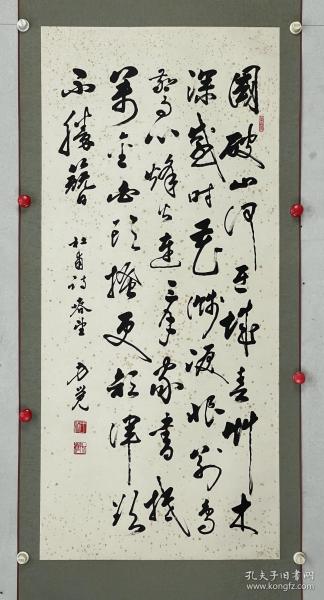 國破山河在城春艸木
深感時花濺淚恨別鳥
驚心烽火連三月家書抵
萬金白頭搔更短渾欲
不勝簪 杜甫詩春望
孔夫子旧书网